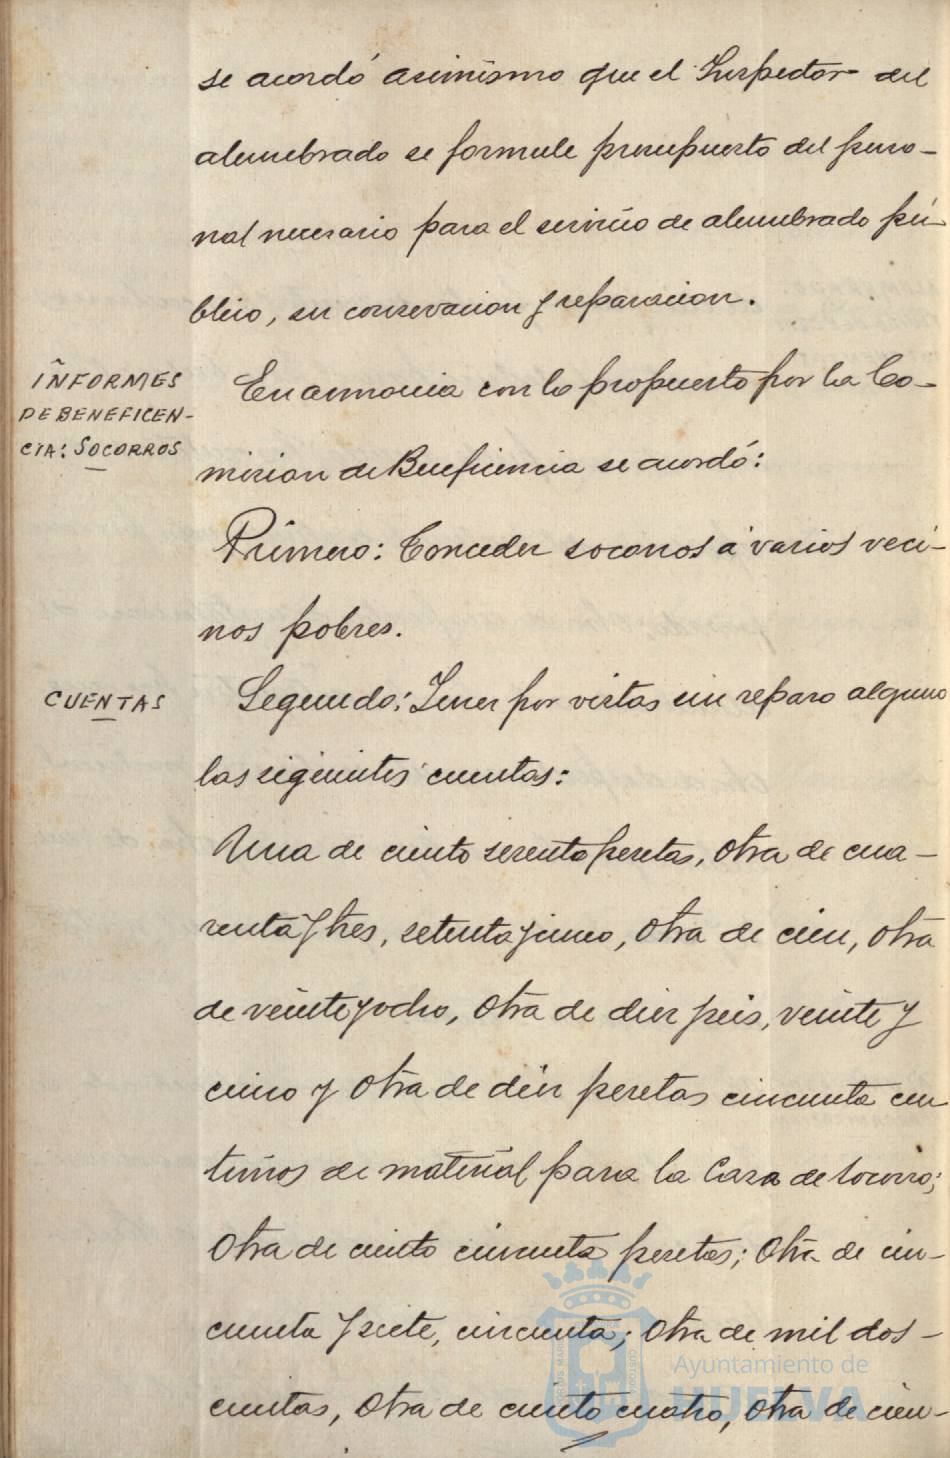 se acordó asimismo que el Inspector del
alumbrado se formule presupuesto del perso-
nal necesario para el servicio de alumbrado pú-
blico, su conservacion y reparacion.
INFORMES
DE BENEFICEN-
CIA: SOCORROS
En armonia con lo propuesto por la Co-
mision de Beneficencia se acordó:
Primero: Conceder socorros á varios veci-
nos pobres.
CUENTAS
Segundo: Tener por vistas sin reparo alguno
las siguientes cuentas:
Una de ciento sesenta pesetas, otra de cua-
renta y tres, setenta y cinco, otra de cien, otra
de veinte y ocho, otra de diez y seis, veinte y
cinco y otra de diez pesetas cincuenta cen
timos de material para la Casa de Socorro;
otra de ciento cincuenta pesetas; otra de cin-
cuenta y siete, cincuenta; otra de mil dos-
cientas, otra de ciento cuatro, otra de cien-
Ayuntamiento de
HUELVA